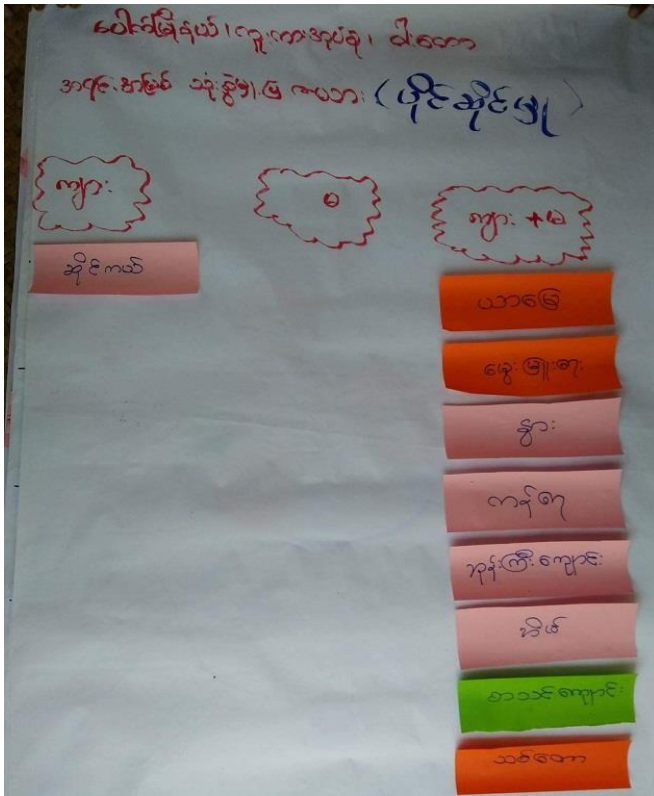 ပေါက်မြို့နယ်၊ ကူးကားအုပ်စု၊ ဝါးတော
အရင်းအမြစ် သုံးစွဲမှုပြ ဇယား (ပိုင်ဆိုင်မှု)
ကျား မ ကျား + မ
ဆိုင်ကယ်
ယာမြေ
မွေးမြူရေး
နွား
ကန်ရေ
ဘုန်းကြီးကျောင်း
အိမ်
စာသင်ကျောင်း
သစ်တော